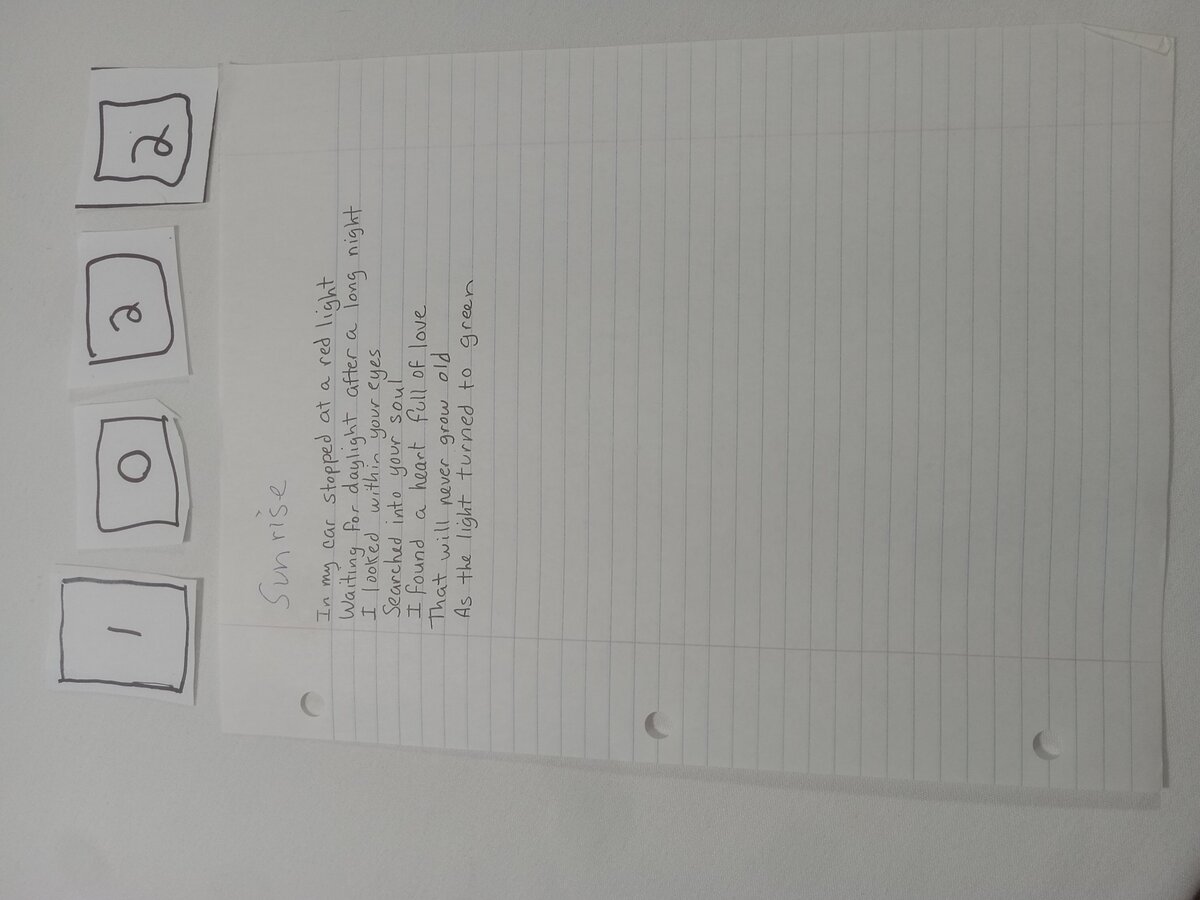 1 0 2 2
Sunrise
In my car stopped at a red light
Waiting for daylight after a long night
I looked within your eyes
Searched into your soul
I found a heart full of love
That will never grow old
As the light turned to green